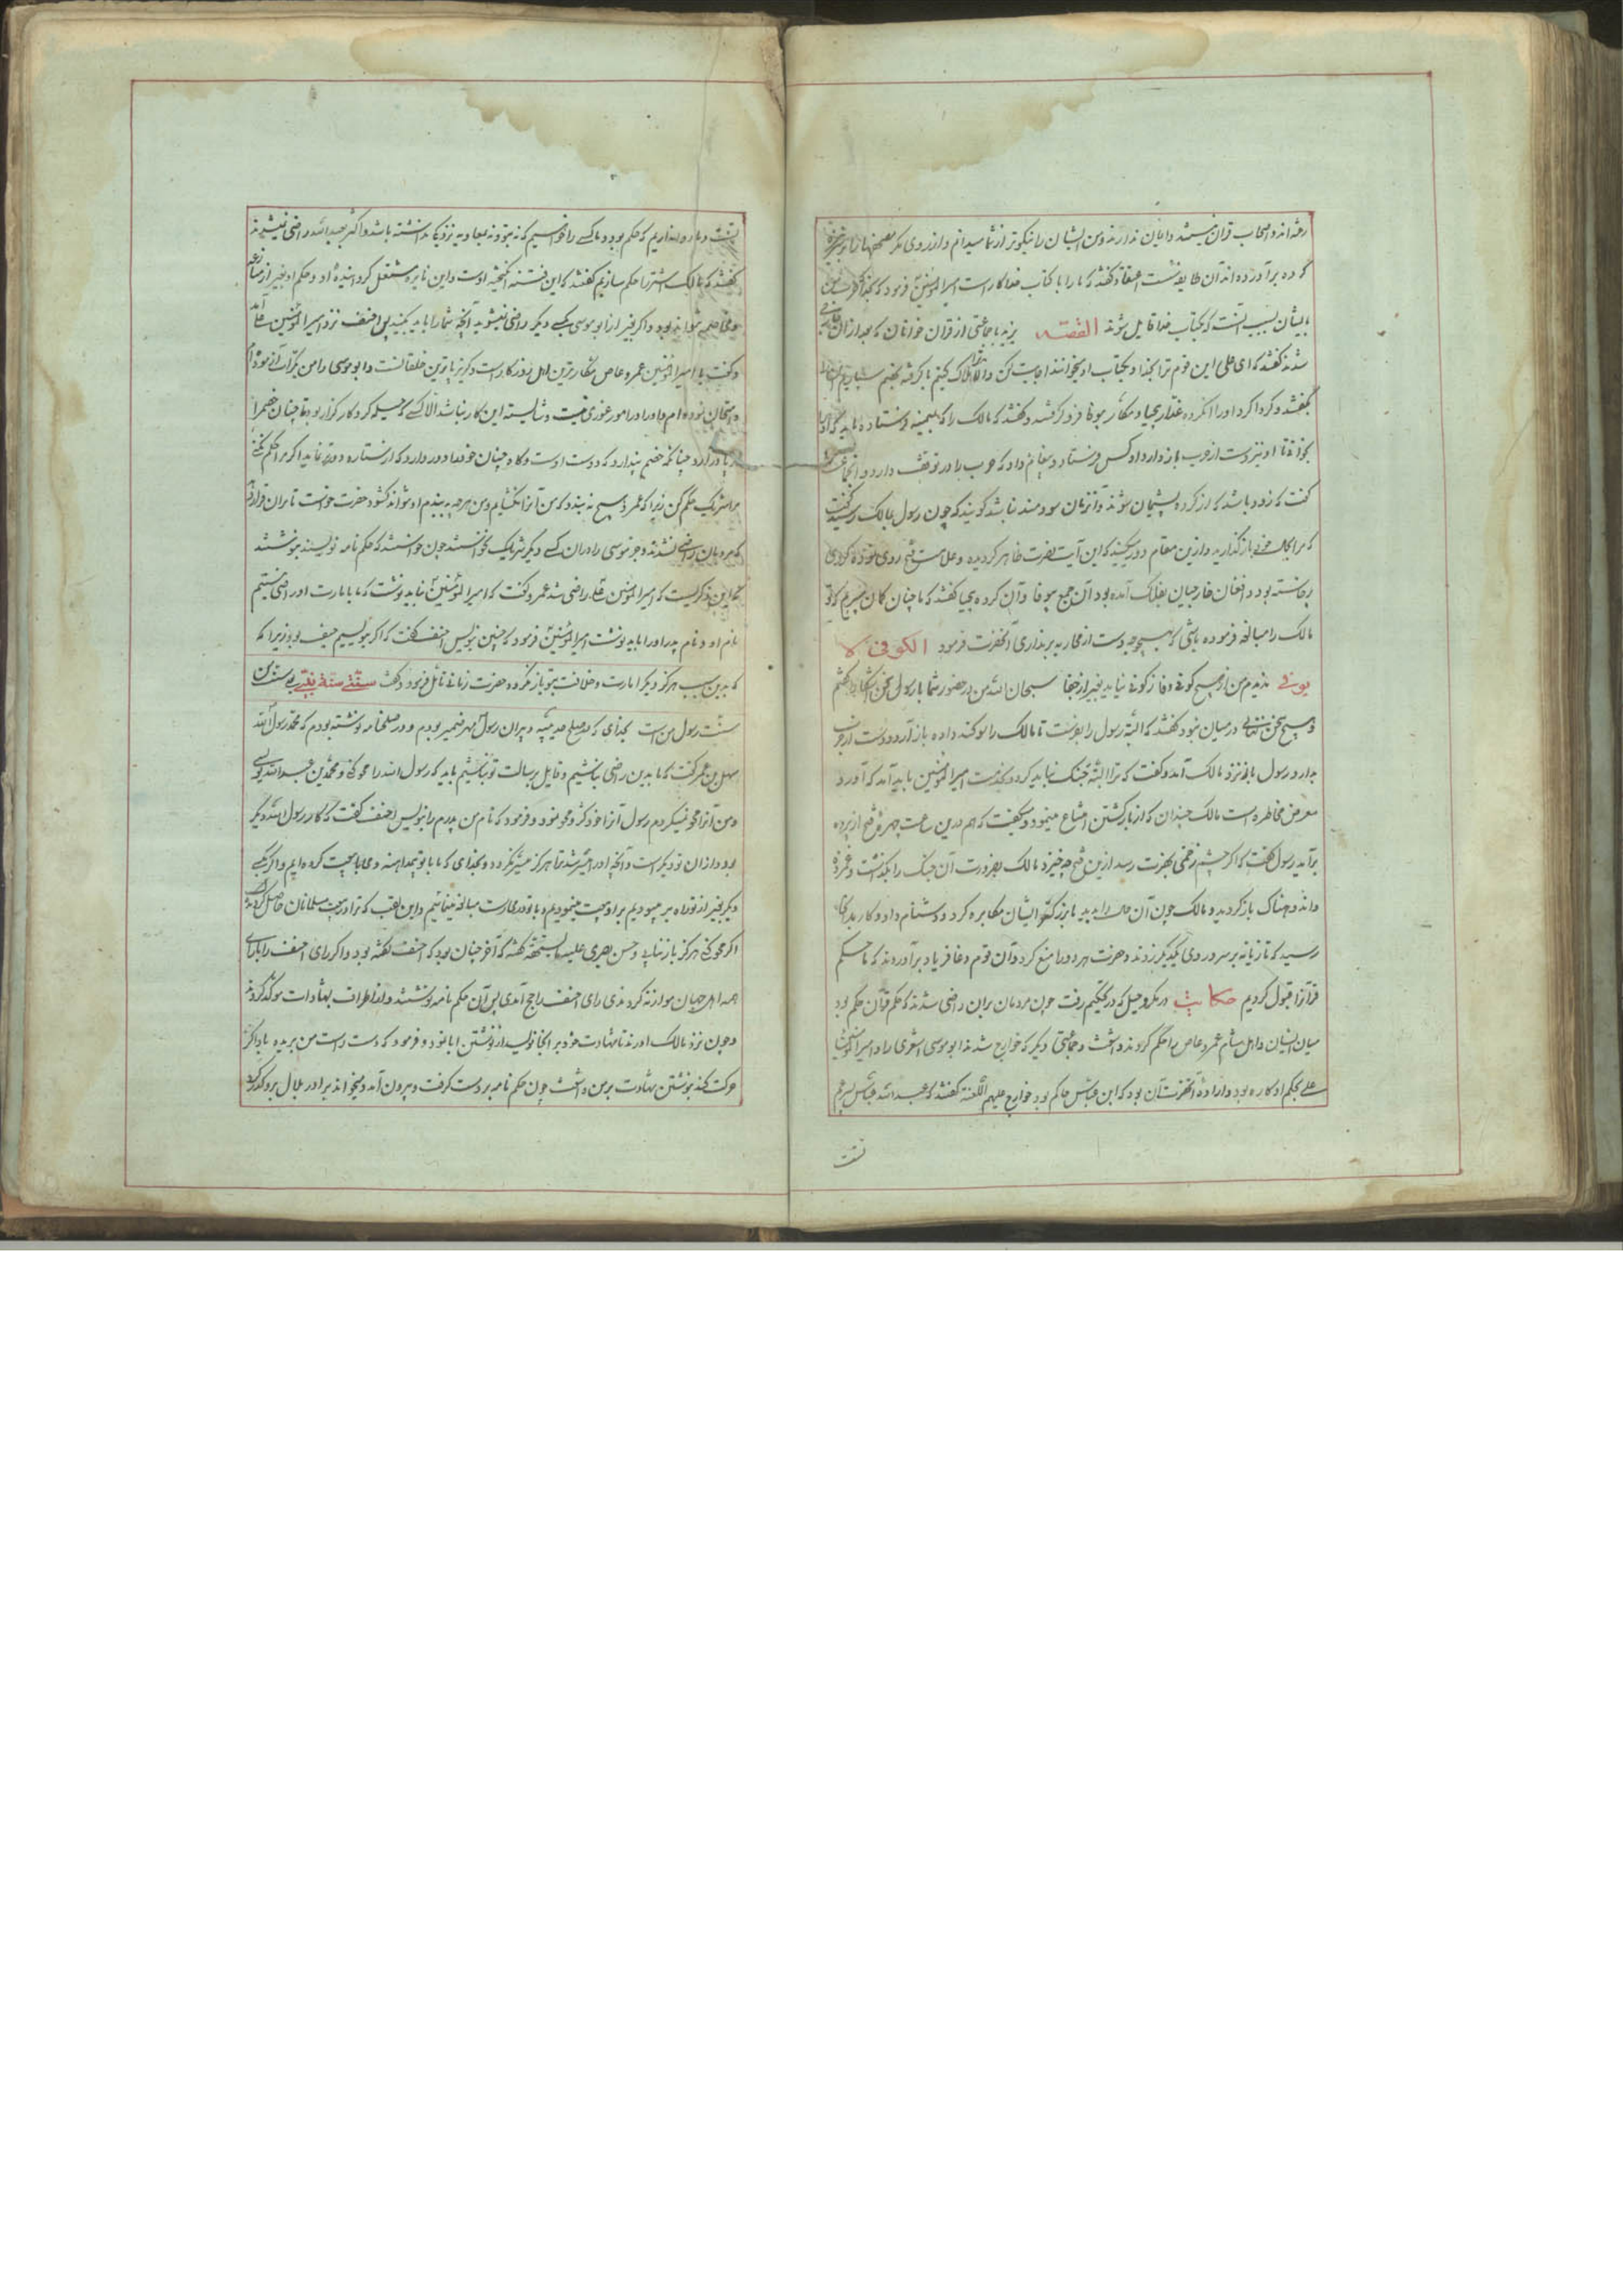 رفته اند و اصحاب قران نیستند و ایمان ندارند و من ایشان را نیکوتر از شما میدانم و از روی مکر مصحفها را بر نیزه
کرده برآورده اند آن طایفه گفتند که ما را با کتاب خدا کار است امیرالمؤمنین فرمود که
بایشان بسبب آنست که بکتاب خدا قایل شوند القصه یزید با جماعتی از قران خوانان که بعد از آن خارجی
شدند گفتند که ای علی این قوم ترا بخدا و بکتاب او میخوانند اجابت کن والا ترا هلاک کنیم یا گرفته بخصم سپاریم
بگفتند و گرداگرد او را آن کرده غدار بیحیا و مکار بیوفا فرو گرفتند و گفتند که مالک را که بمیمنه فرستاده باید که او را
بخوانی تا او نیز دست از حرب باز دارد او کس فرستاد و پیغام داد که حرب را در توقف دارد و
گفت که زود باشد که از کرده پشیمان شوند و آنزمان سودمند نباشد گویند که چون رسول بمالک رسید گفت
که مرا بحال خود بازگذارید و ازین مقام دور مکنید که این آیت نصرت ظاهر گردیده و علامت فتح روی نموده
برخاسته بود و افغان خارجیان بفلک آمده بود آن جمع بیوفا و آن کرده بیحیا گفتند که ما چنان گمان میبریم که تو
مالک را مبالغه فرموده باشی که بهیچوجه دست از محاربه برنداری آنحضرت فرمود الکوفی لا
یوفی ندیدم من از هیچ کوفی وفا ز کوفی نیاید بغیر از جفا سبحان الله من در حضور شما با رسول سخن آشکارا گفتم
و هیچ سخن پنهانی در میان نبود گفتند که البته رسول را بفرست تا مالک را سوکند داده باز آرد و دست از حرب
بدارد رسول باز نزد مالک آمد و گفت که ترا البته جنگ نباید کرد و بخدمت امیرالمؤمنین باید آمد که او در
معرض مخاطره است مالک چندان که از بازگشتن امتناع مینمود و میگفت که هم درین ساعت چهره فتح از پرده
برآید رسول گفت که اگر چشم زخمی بحضرت رسد ازین فتح چه خیزد مالک بضرورت آن جنگ را بگذاشت و
و اندوهناک باز گردید و مالک چون آن حال را بدید باز گشته و ایشان مکابره کرد و دشنام داد و کار بدانجا
رسید که تازیانه بر سر و روی یکدیگر زدند و حضرت هر دو را منع کرد و آن قوم دغا فریاد برآوردند که ما حکم
قرآنرا قبول کردیم حکایت در مکر و حیل که در تحکیم رفت چون مردمان بران راضی شدند که حکم قرآن حکم بود
میان ایشان و اهل شام عمرو عاص را حکم کردند و اشعث و جماعتی دیگر که خوارج شدند ابو موسی اشعری را و امیرالمؤمنین
علی بحکم او کاره بود و اراده آنحضرت آن بود که ابن عباس حاکم بود خوارج علیهم اللعنه گفتند که عبدالله عباس پسر عم
تست
تست و ما روا نداریم که حکم بود و ما کسی را خواهیم که نه بتو و نه بمعاویه نزدیکی نداشته باشد و اکثر بعبدالله راضی نیشدند
گفتند که مالک اشتر را حکم سازیم گفتند که این فتنه انگیخته اوست و این نایره مشتعل کرد اینده او و حکم او بغیر از منازعه
و مخاصمه نتواند بود و اگر بغیر از ابو موسی بکسی دیگر راضی نمیشوید آنچه شما را باید بکنید پس احنف نزد امیرالمؤمنین علی آمد
و گفت یا امیرالمؤمنین عمرو عاص مکارترین اهل روزگار است و گریزپاترین خلقانست و ابو موسی را من بکرات آزموده ام
و امتحان نموده ام و او را در امور غوری نیست و شایسته این کار نباشد الا کسی که حیله گر و کارگزار بود تا چنان خصم را
در پا در آرد چنانکه خصم پندارد که دوست اوست و گاه چنان خود را دور دارد که از ستاره دورتر نماید اگر مرا حکم نمیکنی
مرا شریک حکم کن زیرا که عمر هیچ نه بندد که من آنرا نگشایم و من هرچه به بندم او نتواند گشود حضرت خواست تا بران قرار دهد
که مردمان راضی نشدند و جز موسی را دران کسی دیگر شریک نخواستند چون خواستند که حکم نامه نویسند بنوشتند
که این ذکریست که امیرالمؤمنین علی راضی شد عمرو گفت که امیرالمؤمنین نباید نوشت که ما بامارت او راضی نیستیم
نام او و نام پدر او را باید نوشت امیرالمؤمنین فرمود که چنین نویس احنف گفت که اگر بنویسیم حیف بود زیرا که
که بدین سبب هرگز دیگر امارت و خلافت بتو باز نگردد حضرت زمانی تأمل فرمود و گفت سنتی سنة نبی سنت من
سنت رسول من است بخدای که در صلح حدیبیه دبیران رسول مهر ضمیر بودم و در صلحنامه نوشته بودم که محمد رسول الله
سهل بن عمر گفت که ما بدین راضی نباشیم و قایل برسالت تو نباشیم باید که رسول الله را محو کنی و محمد بن عبدالله نویسی
و من آنرا محو نمیکردم رسول آنرا خود گرفت و محو نمود و فرمود که نام من پدرم را نویس احنف گفت که کار رسول الله دیگر
بود و ازان تو دیگر است و آنچه او را میسر شد تا هرگز میسر نگردد و بخدای که ما با تو بمداهنه و محابا بیعت کرده ایم و اگر بکسی
دیگر بغیر از تو راه بر میبودیم برو بیعت مینمودیم و با تو در محاربت مبالغه مینمائیم و این لقب که ترا در بیعت مسلمانان حاصل
اگر محو کنی هرگز باز نیابی و حسن بصری علیه گفته که آخر چنان بود که احنف گفته بود و اگر رای احنف را با رای
همه اهل جهان موازنه کردندی رای احنف راجح آمدی پس آن حکم نامه نوشتند و از اطراف بشهادات موکد کردند
و چون نزد مالک اوردند تا شهادت خود بر انجا نویسد از نوشتن ابا نمود و فرمود که دست راست من بریده باد اگر
حرکت کند بنوشتن شهادت برین و اشعث چون حکم نامه بر دست گرفت و بیرون آمد و میخواند برادر بلال برو گذر کرد